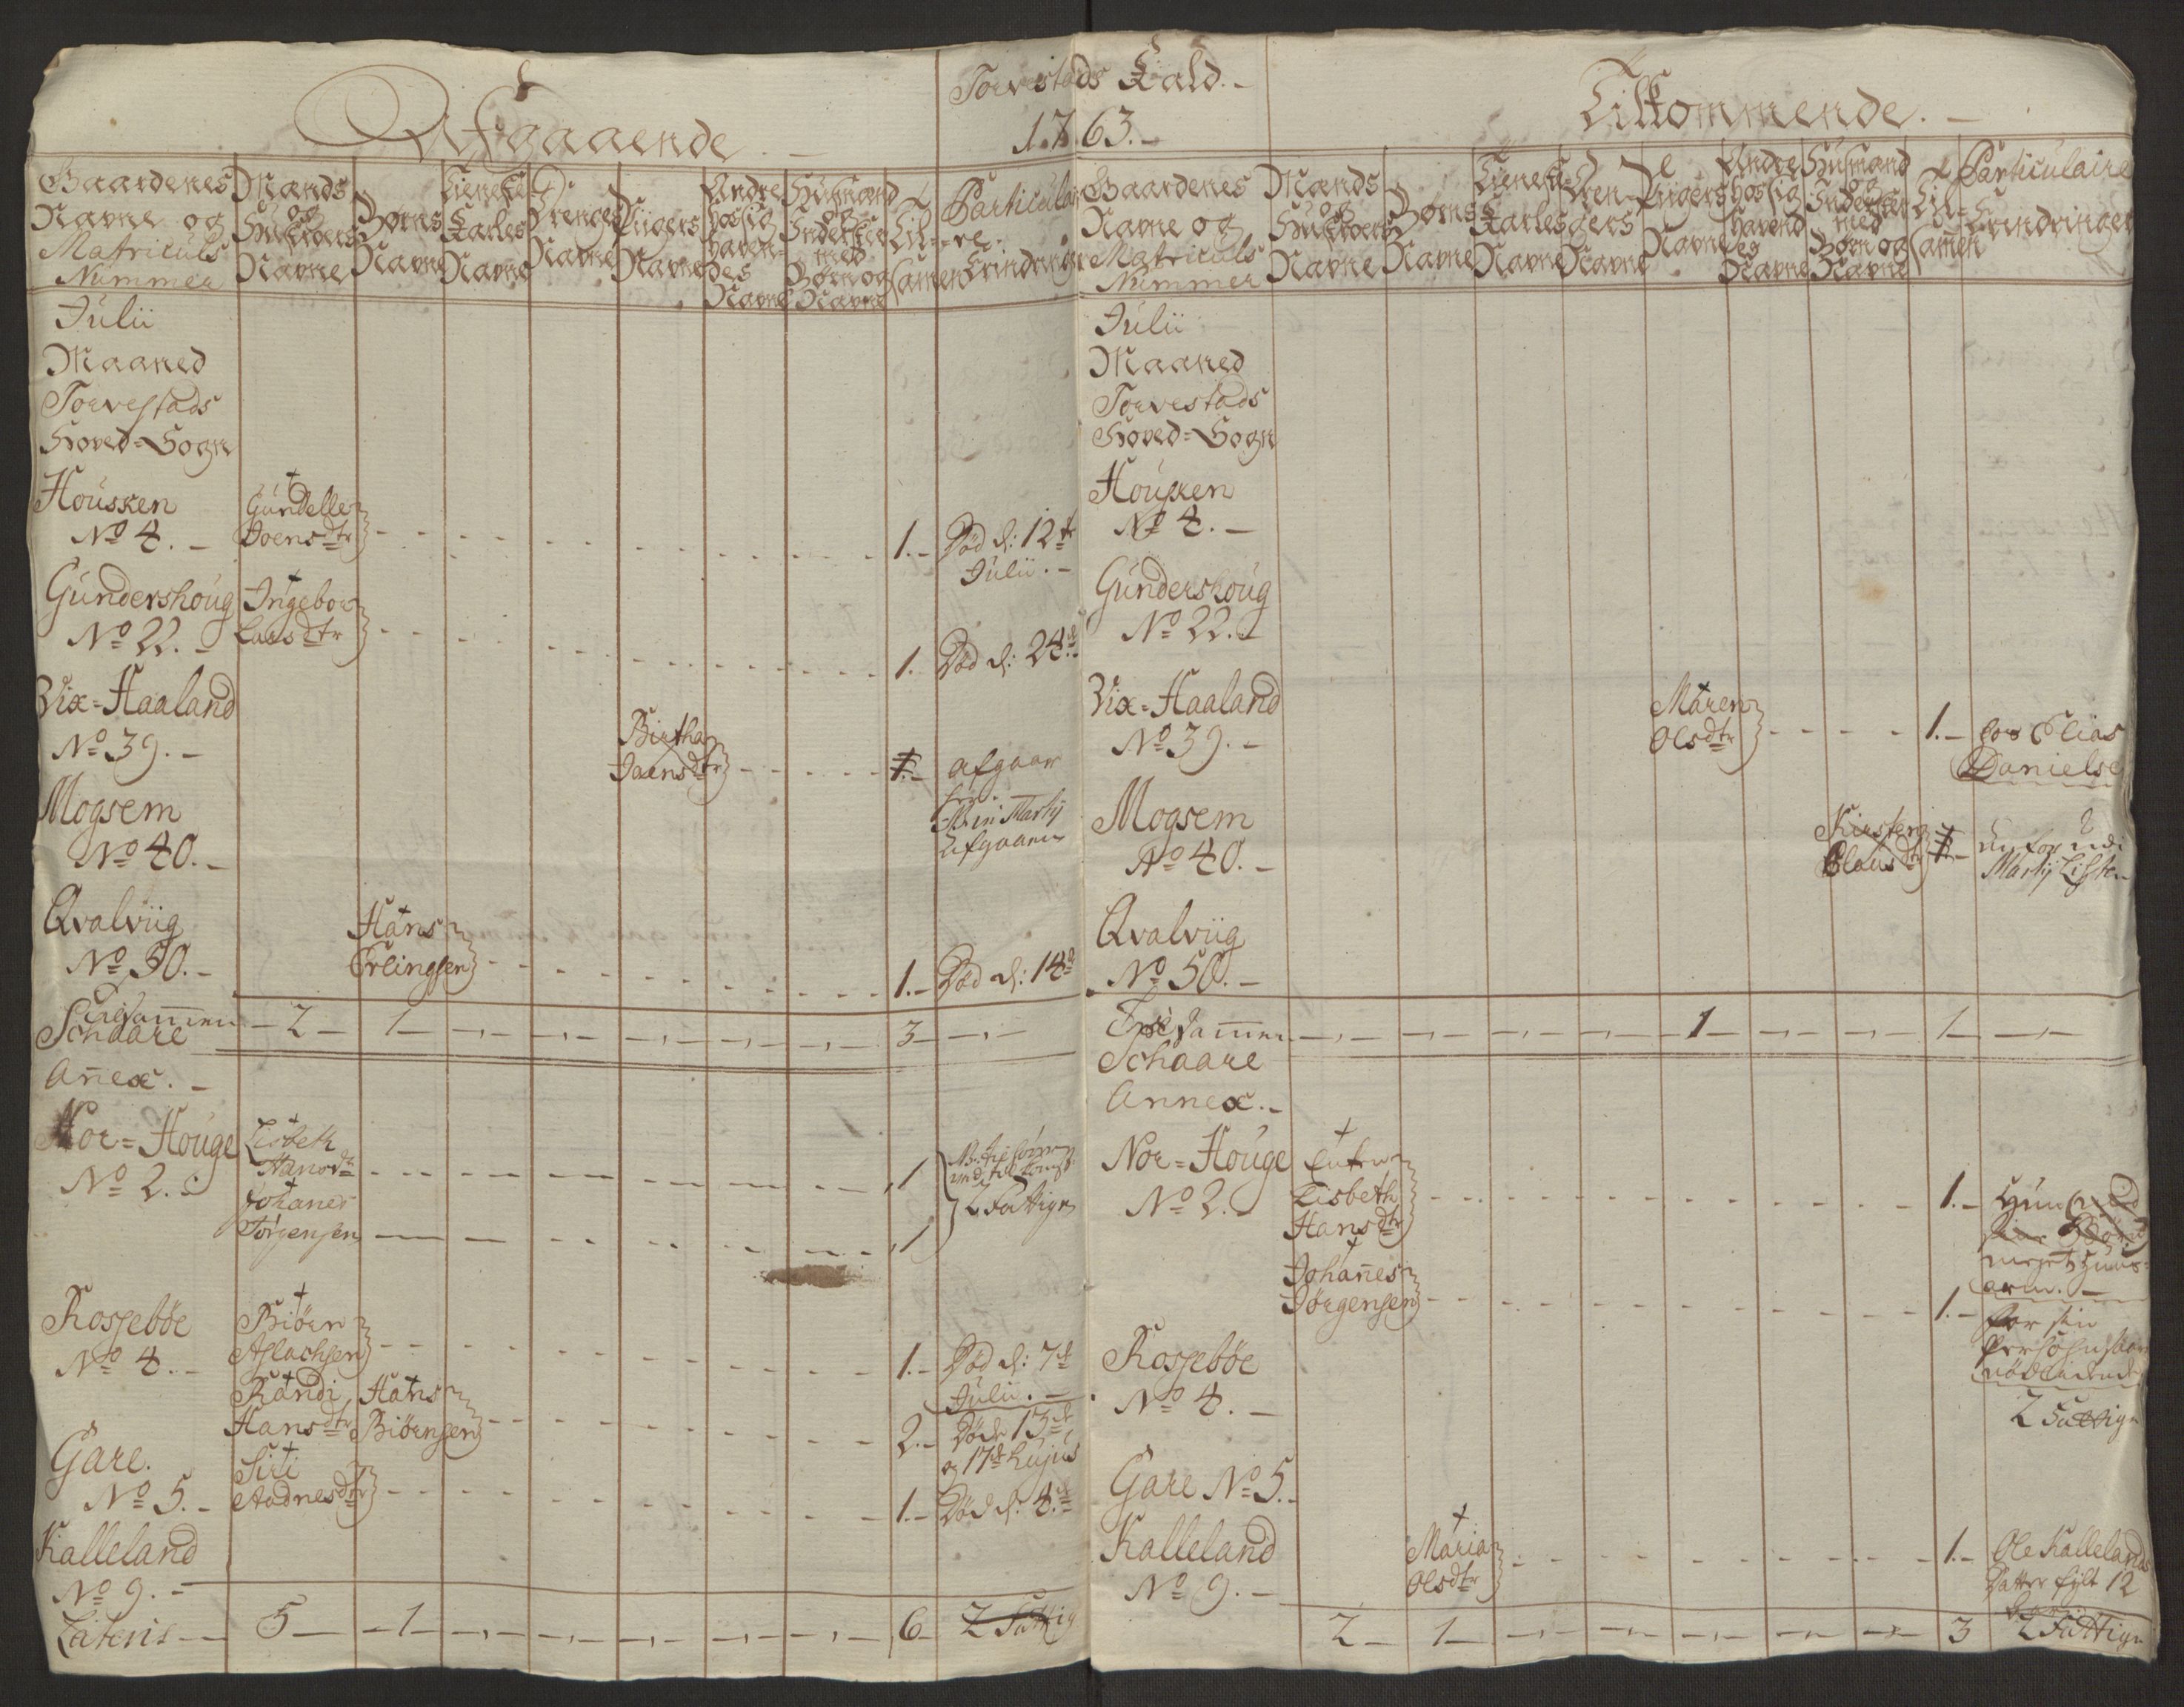 Torvestads Kald.-
1763.-
Afgaaende
Gaardenes Navne og Matriculs Nummer
Mands og Hustroers Navne
Børns Navne
Tieneste Karles Navne
Drenges Navne
Piigers Navne
Andre hos sig havendes Navne
Husmænd og Inderster med Børn og Navne
Til-samen
Particulaire Erindringer
Julii
Maaned
Torvestads
Hoved=Sogn
Housken
No 4.-
Gundelle
Joensdtr
1.- Død d: 12te
Julii.-
Gundershoug
No 22.-
Ingebor
Larsdtr
1. Død d: 24de
Vix=Haaland
No 39.-
Birtha
Joensdtr
1.- afgaar
Mogsem
No 40.-
Qvalviig
No 50.-
Hans
Erlingsen
1.- Død d: 14de
Tilsammen - 2 - 1 - 3 -
Schaare
Anex.-
Nor=Houge
No 2.-
Lisbeth
Hansdtr
1
Johanes
Jørgensen
1
2 Fattige
Rossebøe
No 4.-
Biørn
Aslachsen
1.- Død d: 7de
Julii.-
Randi
Hansdtr
Hans
Biørnsen
2.- Døde 13de
og 17de hujus
Gare.
No 5.-
Siri
Aadnesdtr
1.- Død d: 4de
Kalleland
No 9.-
Lateris - 5 - 1 - 6 2 Fattig
Tilkommende.-
Gaardenes Navne og Matriculs Nummer
Mands og Hustroers Navne
Børns Navne
Tieneste Karles Navne
Drengers Navne
Piigers Navne
Andre hos sig havendes Navne
Husmænd og Inderster med Børn og Navne
Til-samen
Particulaire Erindringer
Julii
Maaned
Torvestads
Hoved=Sogn
Housken
No 4.-
Gundershoug
No 22.-
Vix=Haaland
No 39.-
Maren
Olsdtr
1.- hos Elias
Danielse
Mogsem
No 40.-
Kirsten
Clausdtr
1.-
Martij Listen
Qvalviig
No 50.-
Tilsammen 1 1
Schaare
Annex.-
Nor=Houge
No 2.-
Enken
Lisbeth
Hansdtr
1.- Hun
meget huus-
arm.-
Johanes
Jørgensen
1.- for sin
nødlidende
2 Fattige
Rossebøe
No 4.-
Gare No 5.-
Kalleland
No 9.-
Maria
Olsdtr
1.- Ole Kallelands
Datter fylt 12
2 - 1 - 3 2 Fattige